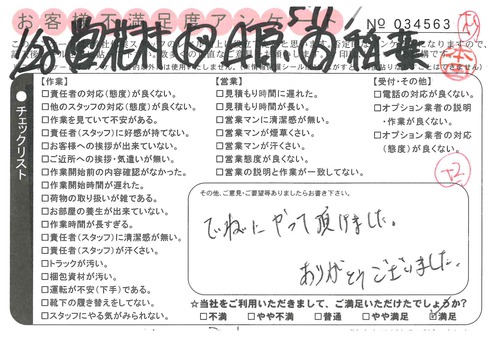 お客様不満足度アンケート
№ 034563
チェックリスト
【作業】
□責任者の対応(態度)が良くない。
□他のスタッフの対応(態度)が良くない。
□作業を見ていて不安がある。
□責任者(スタッフ)に好感が持てない。
□お客様への挨拶が出来ていない。
□ご近所への挨拶・気遣いが無い。
□作業開始前の内容確認がなかった。
□作業開始時間が遅れた。
□荷物の取り扱いが雑である。
□お部屋の養生が出来ていない。
□作業時間が長すぎる。
□責任者(スタッフ)に清潔感が無い。
□責任者(スタッフ)が汗くさい。
□トラックが汚い。
□梱包資材が汚い。
□運転が不安(下手)である。
□靴下の履き替えをしてない。
□スタッフにやる気がみられない。
【営業】
□見積もり時間に遅れた。
□見積もり時間が長い。
□営業マンに清潔感が無い。
□営業マンが煙草くさい。
□営業マンが汗くさい。
□営業態度が良くない。
□営業の説明と作業が一致してない。
【受付・その他】
□電話の対応が良くない。
□オプション業者の説明
・作業が良くない。
□オプション業者の対応
(態度)が良くない。
その他、ご意見・ご要望等ありましたらお書き下さい。
でいねいにやって頂けました。
ありがとうございました。
☆当社をご利用いただきまして、ご満足いただけたでしょうか?
□不満 □やや不満 □普通 □やや満足 □満足